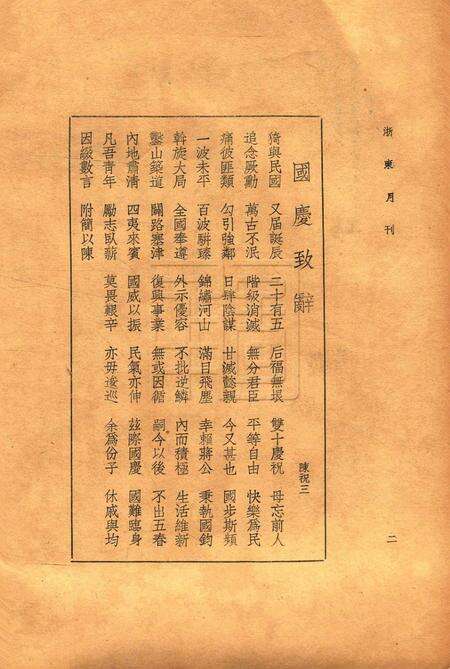 浙東月刊
二
國慶致辭
陳祝三
猗與民國 又屆誕辰 二十有五 后福無垠 雙十慶祝 毋忘前人
追念厥勳 萬古不泯 階級消滅 無分君臣 平等自由 快樂爲民
痛彼匪類 勾引強鄰 日肆陰謀 甘滅懿親 今又甚也 國步斯頻
一波未平 百波騈臻 錦繡河山 滿目飛塵 幸賴蔣公 秉執國鈞
斡旋大局 全國奉遵 外示優容 不批逆鱗 內而積極 生活維新
鑿山築道 闢路塞津 復興事業 無或因循 嗣今以後 不出五春
內地肅清 四夷來賓 國威以振 民氣亦伸 茲際國慶 國難臨身
凡吾青年 勵志臥薪 莫畏艱辛 亦毋逡巡 余爲份子 休戚與均
因綴數言 附簡以陳